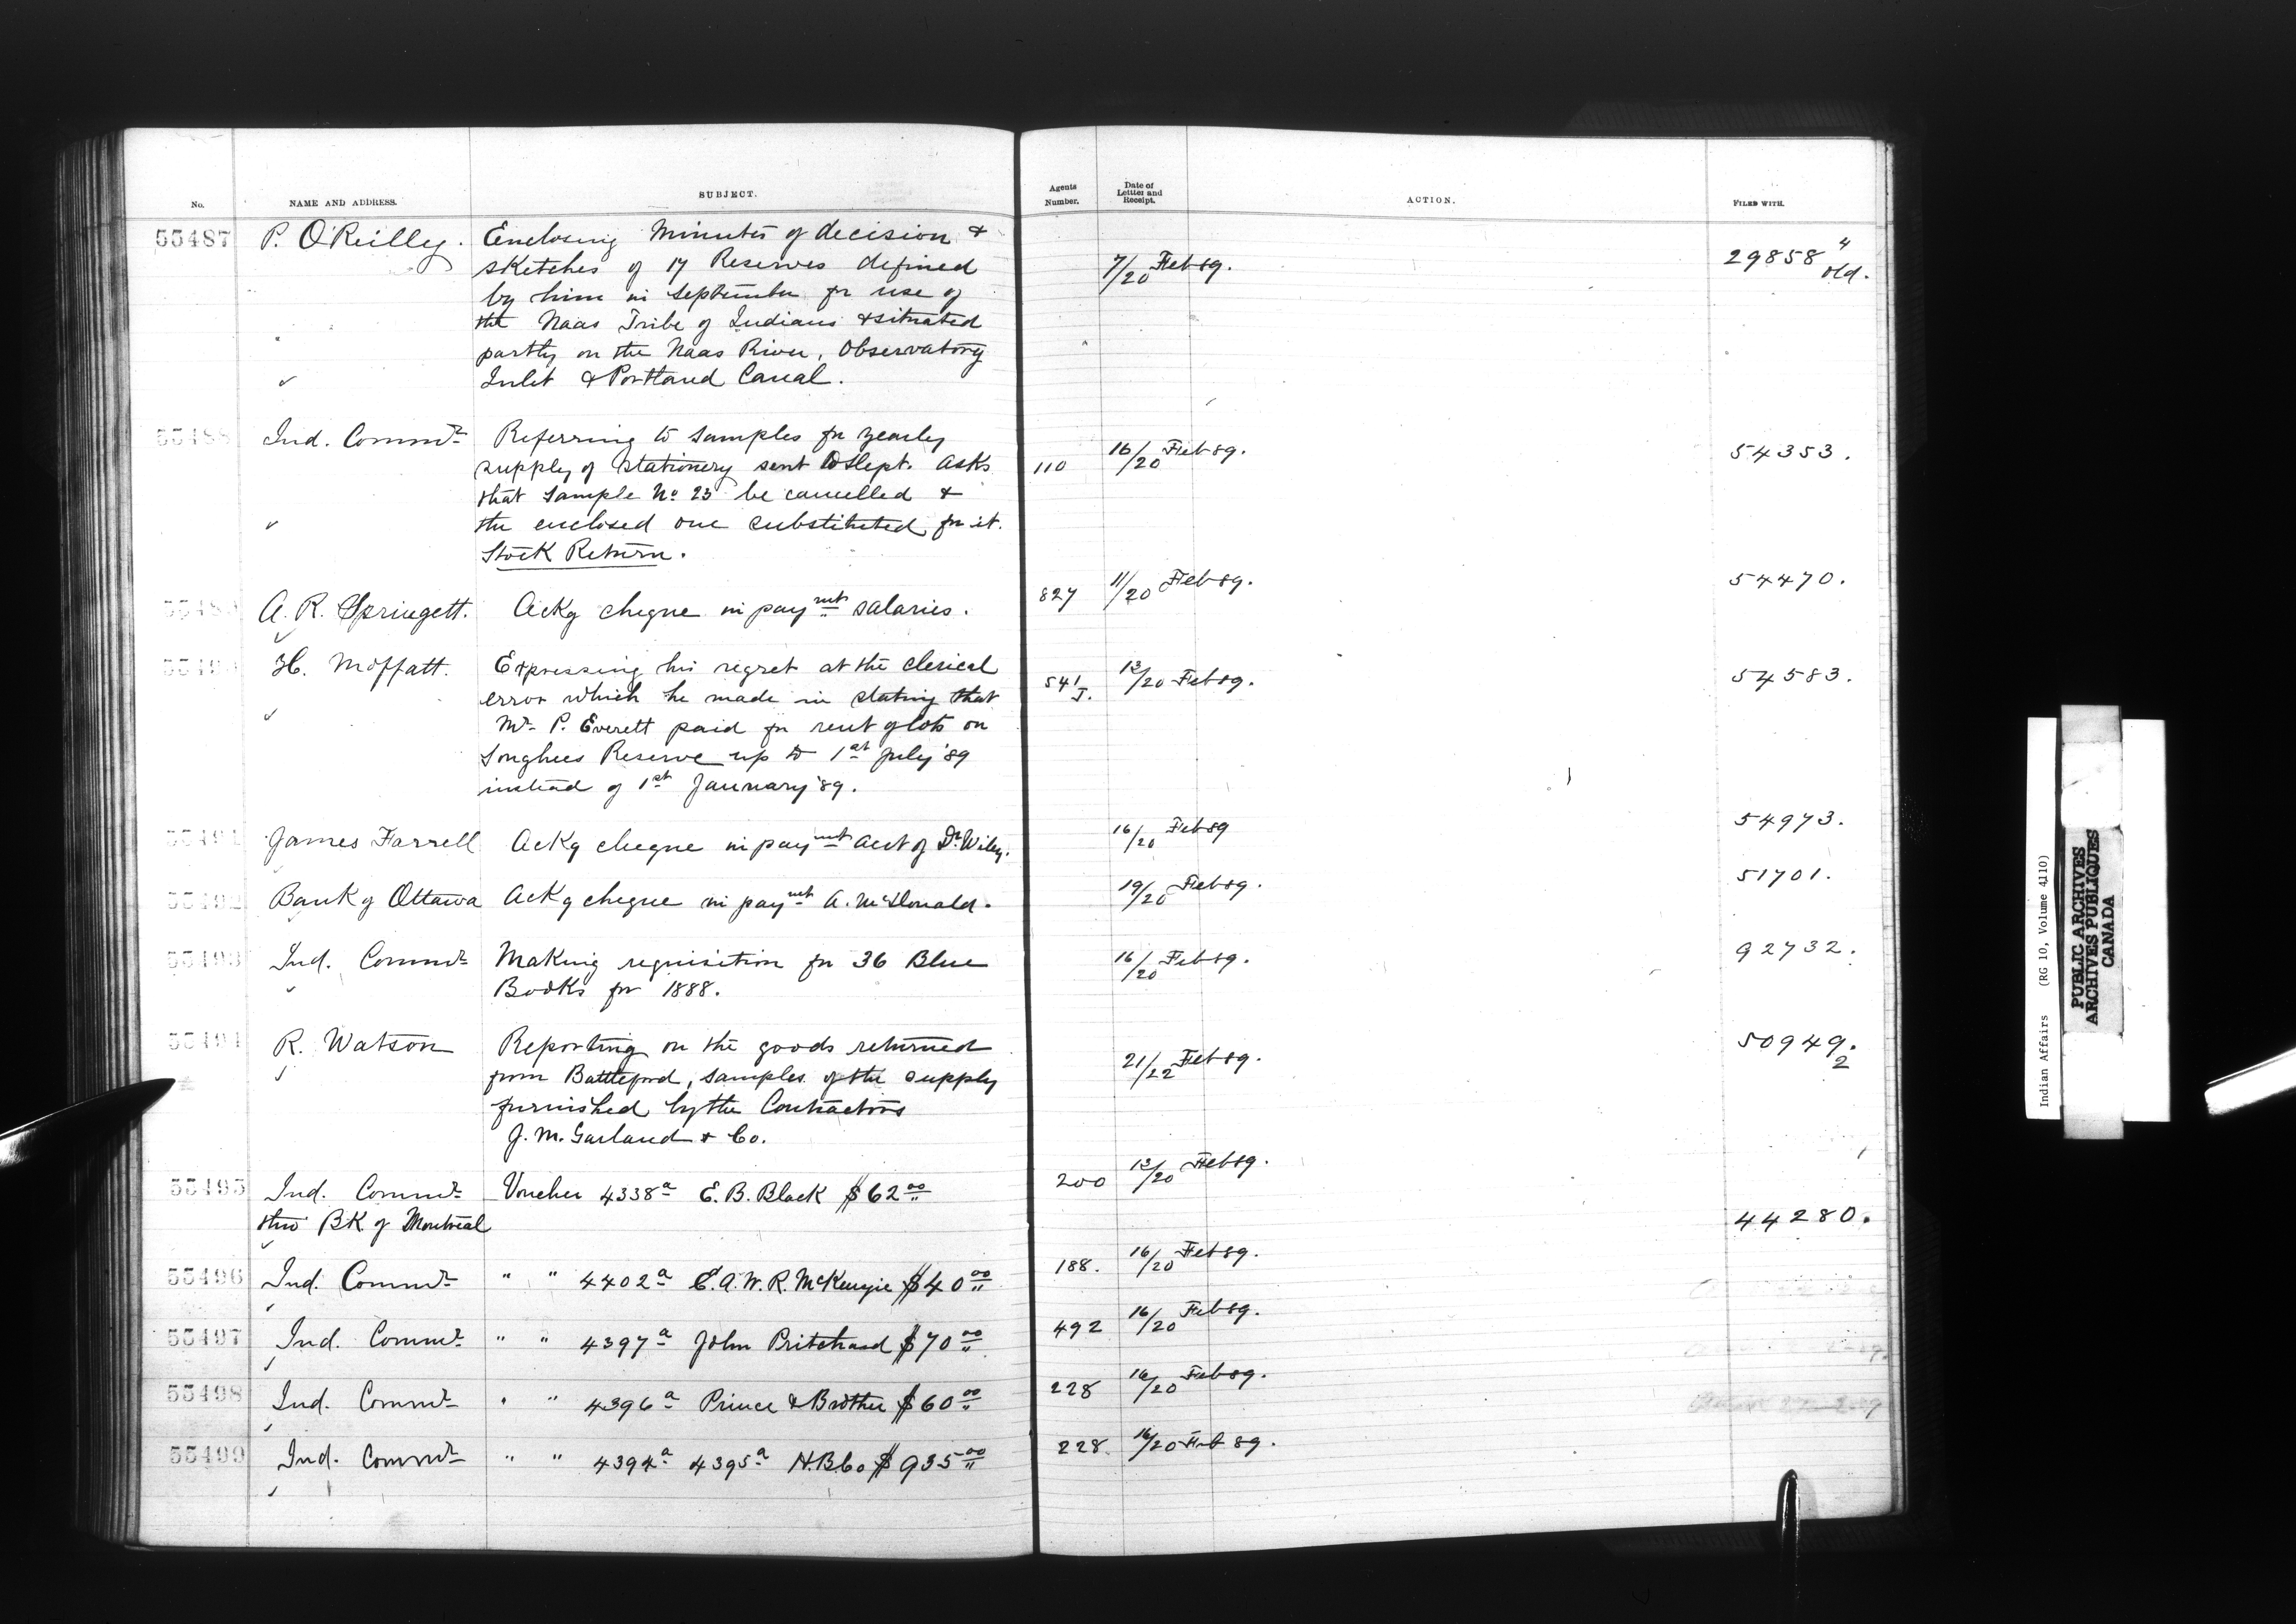 No. NAME AND ADDRESS. SUBJECT. Agents Number. Date of Letter and Receipt. ACTION. FILED WITH.
55487 P. O'Reilly. Enclosing Minutes of decision &
sketches of 17 Reserves defined 7/20 Feb 89. 29858 4 old.
by him in September for use of
the Naas Tribe of Indians & situated
partly on the Naas River, Observatory
Inlet & Portland Canal.
55488 Ind. Commr Referring to samples for yearly
supply of stationery sent to Dept. Asks 110 16/20 Feb 89. 54353.
that sample No 23 be cancelled &
the enclosed one substituted for it.
Stock Return.
55489 A. R. Springett. Ackg cheque in paymnt salaries. 827 11/20 Feb 89. 54470.
55490 H. Moffatt. Expressing his regret at the clerical
error which he made in stating that 541/J. 13/20 Feb 89. 54583.
Mr P. Everett paid for rent of lots on
Songhees Reserve up to 1st July '89
instead of 1st January '89.
55491 James Farrell Ackg cheque in paymnt acct of Dr Wiley. 16/20 Feb 89 54973.
55492 Bank of Ottawa Ackg cheque in paymnt A. McDonald. 19/20 Feb 89. 51701.
55493 Ind. Commr Making requisition for 36 Blue 16/20 Feb 89. 92732.
Books for 1888.
55494 R. Watson Reporting on the goods returned 21/22 Feb 89. 50949. 2
from Battleford, samples of the supply
furnished by the Contractors
J. M. Garland & Co.
55495 Ind. Commr Voucher 4338a E. B. Black $62 00 200 13/20 Feb 89.
thro BK of Montreal 44280.
55496 Ind. Commr " " 4402a E. A. W. R. McKenzie $40 00 188. 16/20 Feb 89.
55497 Ind. Commr " " 4397a John Pritchard $70 00 492 16/20 Feb 89.
55498 Ind. Commr " " 4396a Prince & Brother $60 00 228 16/20 Feb 89.
55499 Ind. Commr " " 4394a 4395a H.B.Co $935 00 228 16/20 Feb 89.
Indian Affairs (RG 10, Volume 4110)
PUBLIC ARCHIVES
ARCHIVES PUBLIQUES
CANADA